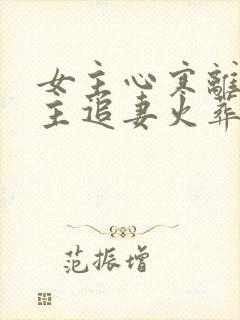 女主心寒離
主追妻火葬
范振增